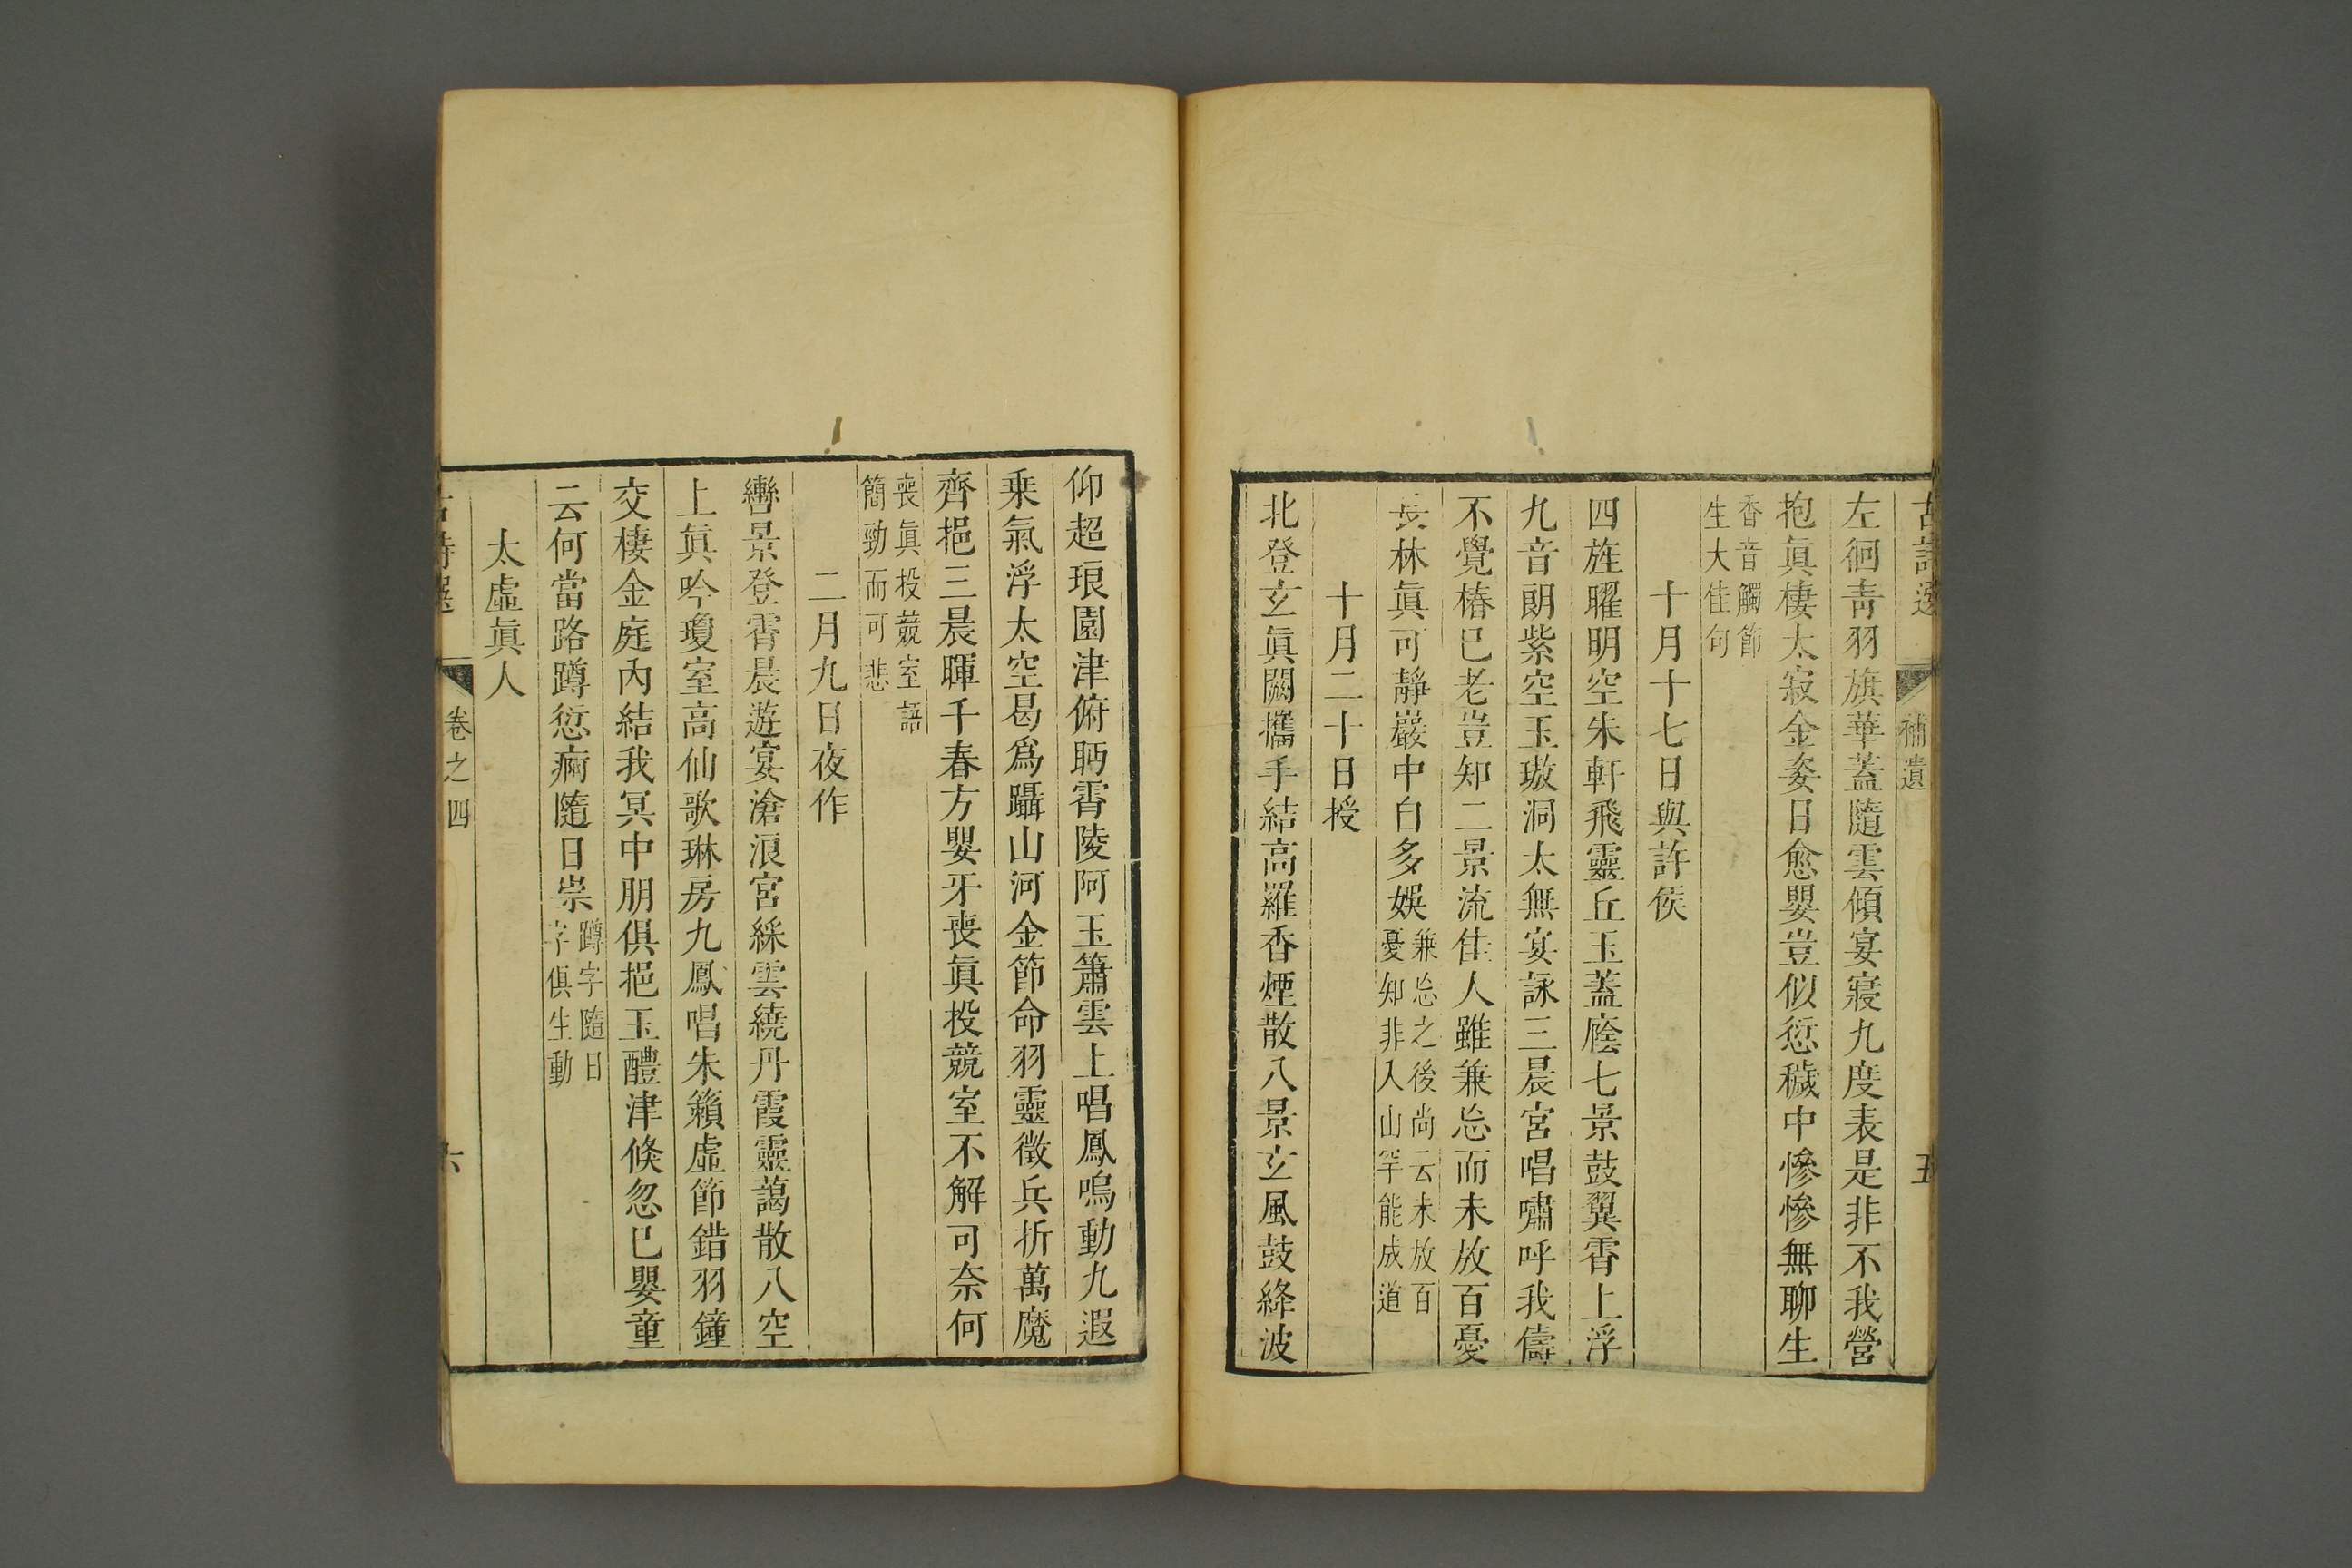 古詩選 補遺 五
左徊青羽旗華蓋隨雲傾宴寢九度表是非不我營
抱眞棲太寂金姿日愈嬰豈似愆穢中慘慘無聊生
香音觸節
生大佳句
十月十七日與許侯
四旌曜明空朱軒飛靈丘玉蓋廕七景鼓翼霄上浮
九音朗紫空玉璈洞太無宴詠三晨宮唱嘯呼我儔
不覺椿已老豈知二景流佳人雖兼忘而未放百憂
長林眞可靜巖中自多娛
兼忘之後尚云未放百
憂知非入山罕能成道
十月二十日授
北登玄眞闕攜手結高羅香煙散八景玄風鼓絳波
仰超琅園津俯眄霄陵阿玉簫雲上唱鳳鳴動九遐
乗氣浮太空曷爲躡山河金節命羽靈徵兵折萬魔
齊挹三晨暉千春方嬰牙喪眞投競室不解可奈何
喪眞投競室語
簡勁而可悲
二月九日夜作
轡景登霄晨遊宴滄浪宮綵雲繞丹霞靈藹散八空
上眞吟瓊室高仙歌琳房九鳳唱朱籟虛節錯羽鐘
交棲金庭內結我冥中朋俱挹玉醴津倏忽已嬰童
云何當路蹲愆痾隨日崇
蹲字隨日
字俱生動
太虛眞人
古詩選 卷之四 六